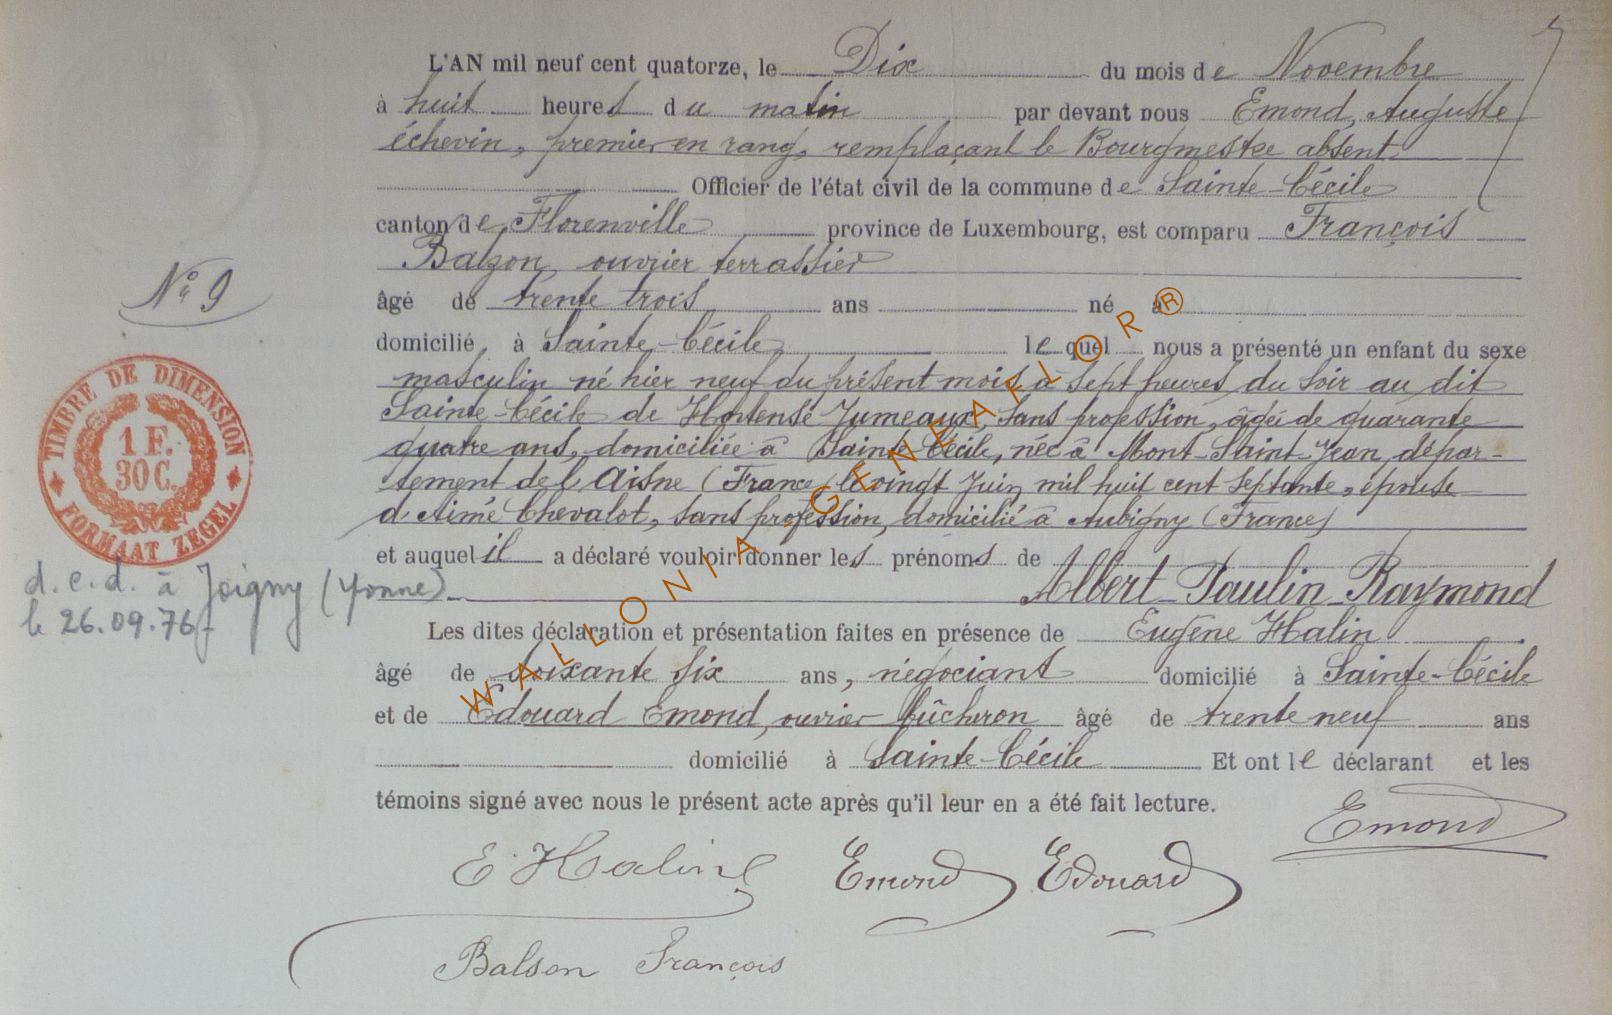 L'AN mil neuf cent quatorze, le Dix du mois de Novembre
à huit heures du matin par devant nous Emond, Auguste
échevin, premier en rang, remplaçant le Bourgmestre absent.
Officier de l'état civil de la commune de Sainte-Cécile
canton de Florenville province de Luxembourg, est comparu François
Balzon, ouvrier terrassier
âgé de trente trois ans né à
domicilié à Sainte-Cécile lequel nous a présenté un enfant du sexe
masculin né hier neuf du présent mois, à sept heures du soir au dit
Sainte-Cécile de Hortense Jumeaux, sans profession, âgée de quarante
quatre ans, domiciliée à Sainte Cécile, née à Mont-Saint-Jean, dépar-
tement de l'Aisne (France) le vingt Juin mil huit cent septante, épouse
d'Aimé Chevalot, sans profession, domicilié à Aubigny (France)
et auquel il a déclaré vouloir donner les prénoms de
Albert-Paulin-Raymond
Les dites déclaration et présentation faites en présence de Eugène Halin
âgé de soixante six ans, négociant domicilié à Sainte-Cécile
et de Edouard Emond, ouvrier bûcheron âgé de trente neuf ans
domicilié à Sainte-Cécile Et ont le déclarant et les
témoins signé avec nous le présent acte après qu'il leur en a été fait lecture.
Emond
E. Halin Emond Edouard
Balson François
N° 9
TIMBRE DE DIMENSION
1 F.
30 C.
FORMAAT ZEGEL
d.c.d. à Joigny (Yonne)
le 26.09.76
WALLONIA-GENEAFLOR®